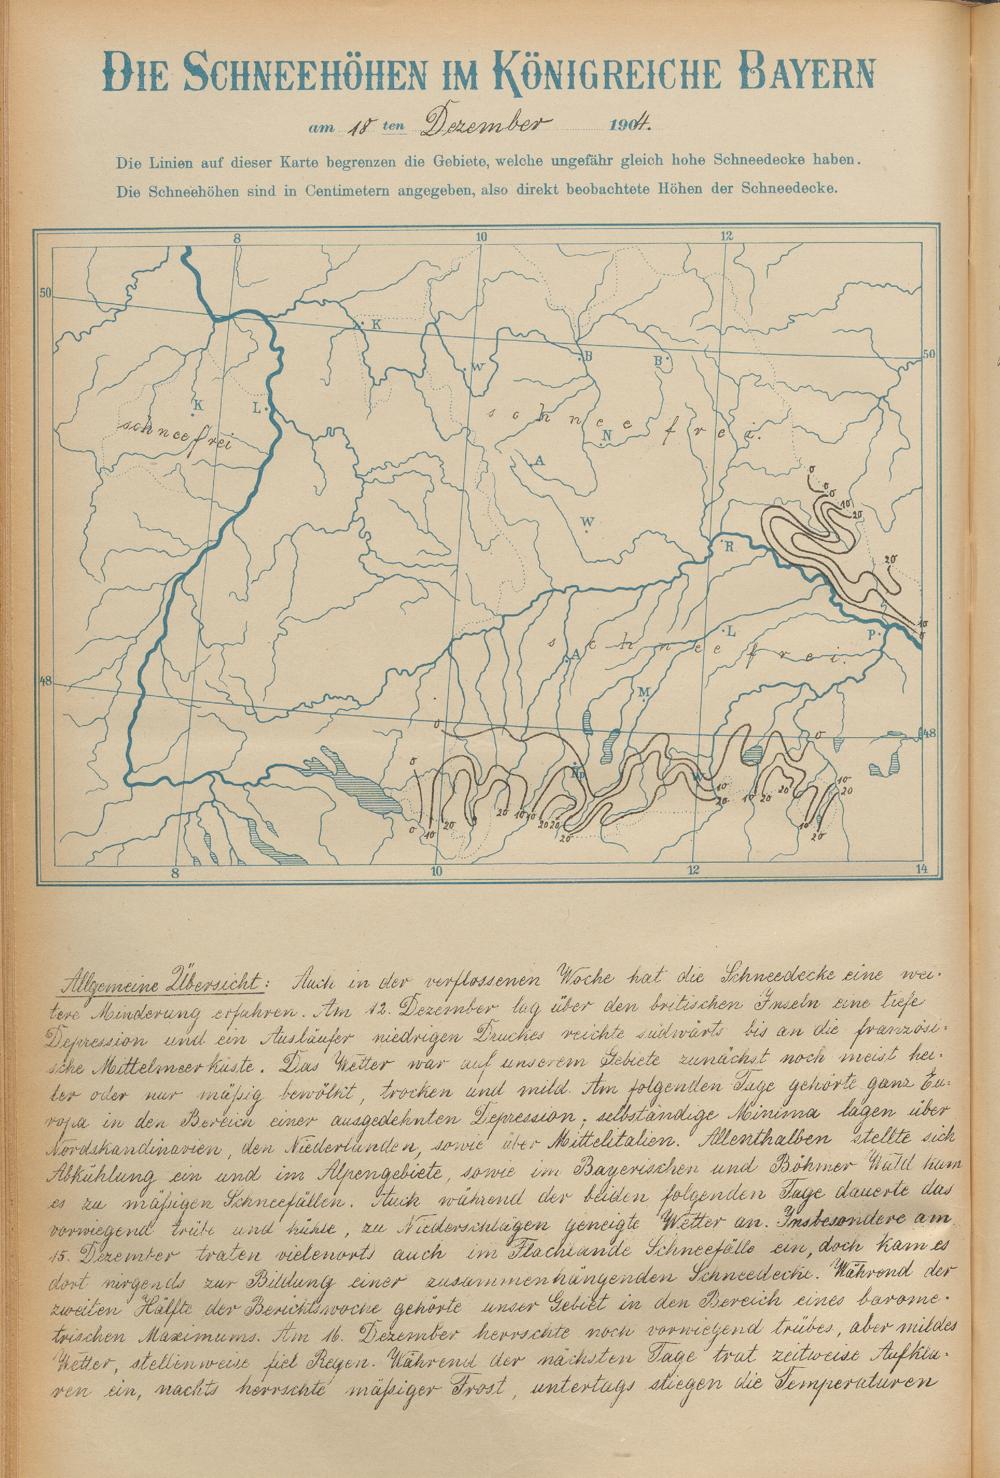 DIE SCHNEEHÖHEN IM KÖNIGREICHE BAYERN
am 18ten Dezember 1904.
Die Linien auf dieser Karte begrenzen die Gebiete, welche ungefähr gleich hohe Schneedecke haben.
Die Schneehöhen sind in Centimetern angegeben, also direkt beobachtete Höhen der Schneedecke.
8 10 12
50
K
W B B
50
K L
schneefrei
schneefrei.
N
A
W
0 0 0 10 20
R
20
L
schneefrei.
A
P
10 0
48
M
0
48
0
0
10 20
10 20
0 10 20 20 10 10 20 20 20
10 20 20
10 20
8 10 12 14
Allgemeine Übersicht: Auch in der verflossenen Woche hat die Schneedecke eine wei-
tere Minderung erfahren. Am 12. Dezember lag über den britischen Inseln eine tiefe
Depression und ein Ausläufer niedrigen Druckes reichte südwärts bis an die französi-
sche Mittelmeerküste. Das Wetter war auf unserem Gebiete zunächst noch meist hei-
ter oder nur mäßig bewölkt, trocken und mild. Am folgenden Tage gehörte ganz Eu-
ropa in den Bereich einer ausgedehnten Depression; selbständige Minima lagen über
Nordskandinavien, den Niederlanden, sowie über Mittelitalien. Allenthalben stellte sich
Abkühlung ein und im Alpengebiete, sowie im Bayerischen und Böhmer Wald kam
es zu mäßigen Schneefällen. Auch während der beiden folgenden Tage dauerte das
vorwiegend trübe und kühle, zu Niederschlägen geneigte Wetter an. Insbesondere am
15. Dezember traten vielenorts auch im Flachlande Schneefälle ein, doch kam es
dort nirgends zur Bildung einer zusammenhängenden Schneedecke. Während der
zweiten Hälfte der Berichtswoche gehörte unser Gebiet in den Bereich eines barome-
trischen Maximums. Am 16. Dezember herrschte noch vorwiegend trübes, aber mildes
Wetter, stellenweise fiel Regen. Während der nächsten Tage trat zeitweise Aufkla-
ren ein, nachts herrschte mäßiger Frost, untertags stiegen die Temperaturen